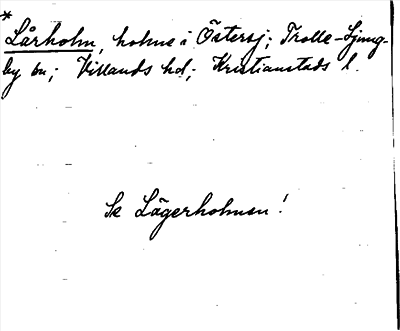 *
Lårholm, holme i Östersj; Trolle-Ljung-
by sn; Villands hd; Kristianstads l.
Se Lägerholmen!